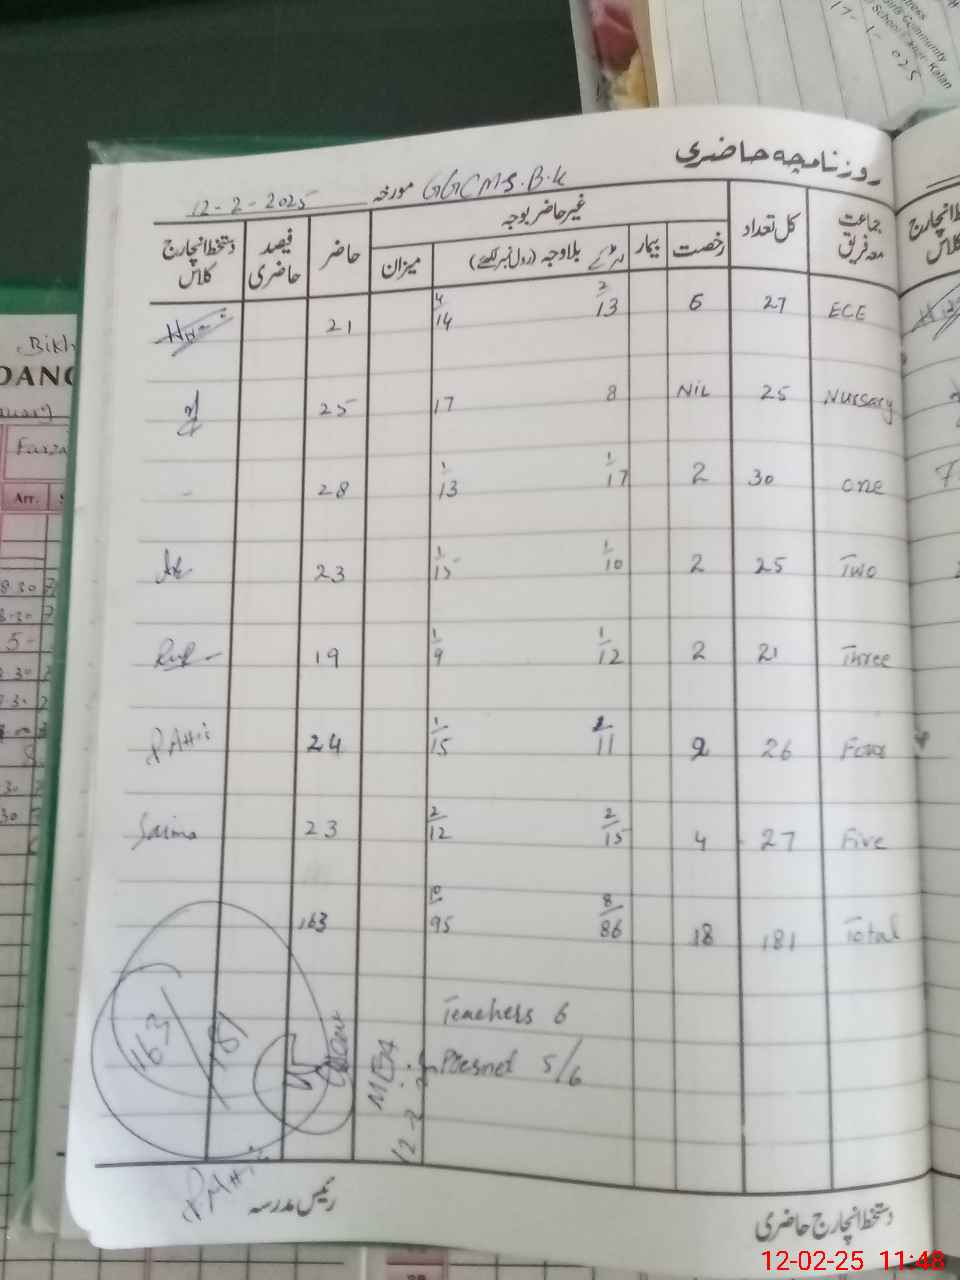 روزنامچہ حاضری
GGCMS.B.K مورخہ 12-2-2025
جماعت معہ فریق کل تعداد غیر حاضر بوجہ حاضر فیصد حاضری دستخط انچارج کلاس
رخصت بیمار بلاوجہ (رول نمبر لکھئے) میزان
ECE 27 6 2/13 4/14 21
Nursary 25 NiL 8 17 25
one 30 2 1/17 1/13 28
Two 25 2 1/10 1/15 23
Three 21 2 1/12 1/9 19
Four 26 2 1/11 1/15 24
Five 27 4 2/15 2/12 23 Saima
Total 181 18 8/86 10/95 163
Teachers 6
Presnet 5/6
163/181
MEA
12-2-2
رئیس مدرسہ
دستخط انچارج حاضری
12-02-25 11:48
Community
17-1-025
Bikh
DANC
Farza
Arr.